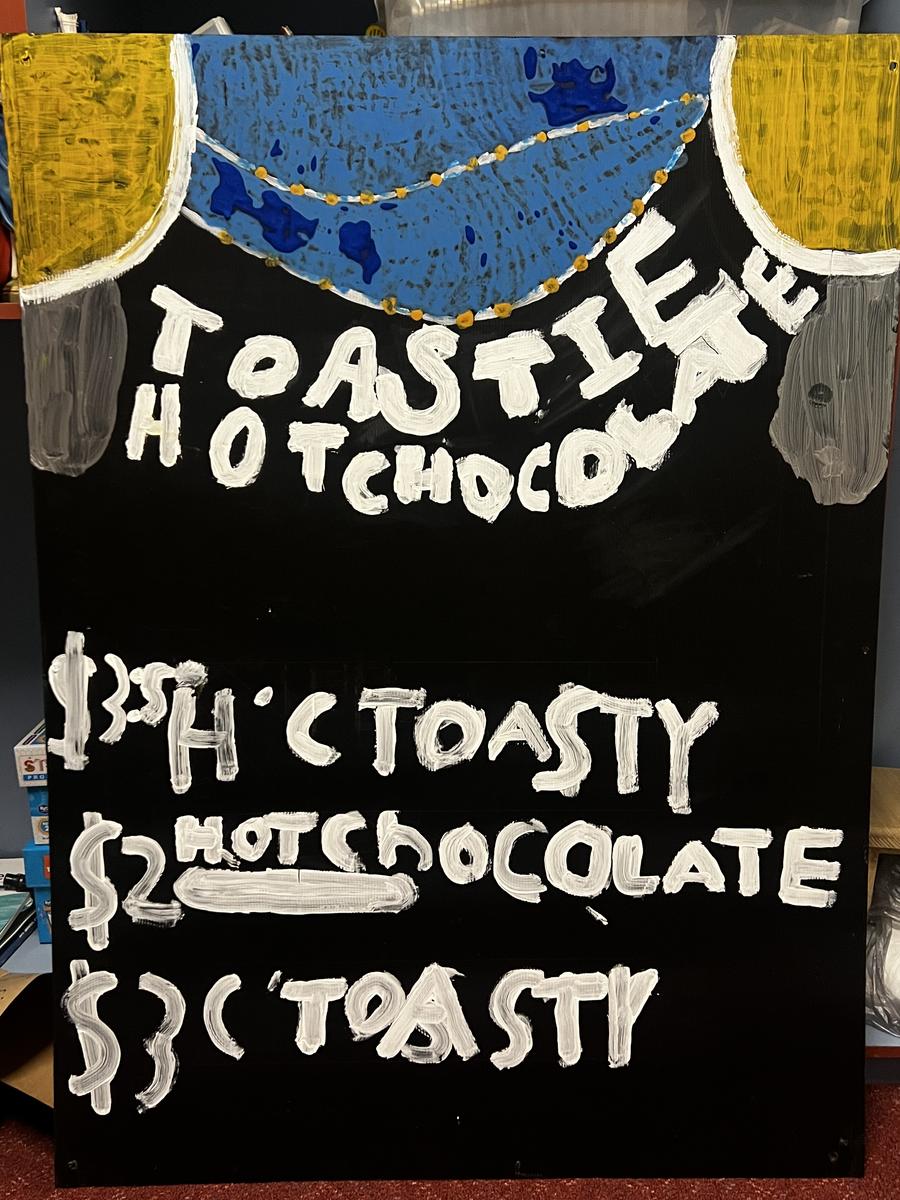 TOASTIE
HOT CHOCOLATE
$35 H·C TOASTY
$2 HOT ChOCOLATE
$3 C'TOASTY